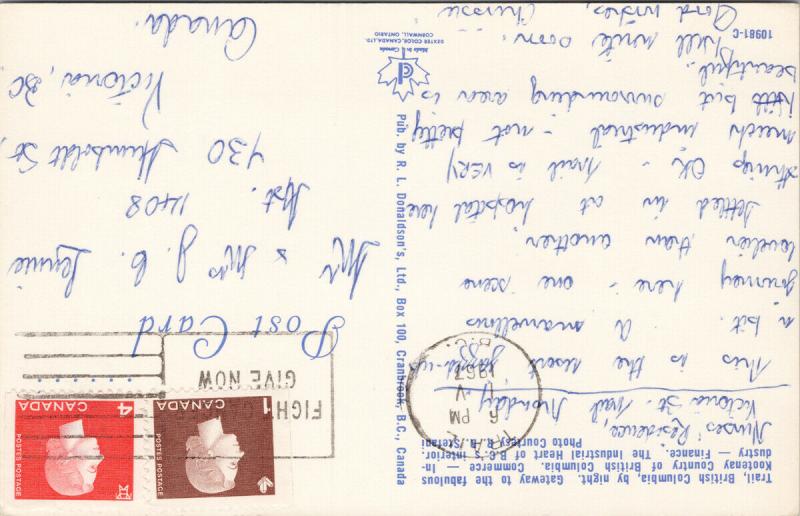 Trail, British Columbia, by night. Gateway to the fabulous
Kootenay Country of British Columbia. Commerce — In-
dustry — Finance. The Industrial Heart of B.C.'s interior.
Photo Courtesy R. N. Stefani
Nurses' Residence,
Victoria St. Trail Monday
This is the resort
a bit. A marvellous
journey here - one scene
lovelier than another
Settled in at hospital here
things OK - Trail is VERY
much industrial - not pretty
bit surrounding area is
beautiful.
Will write soon.
Good wishes,
Chrissie
10981-C
Made in Canada
DEXTER COLOR, CANADA, LTD.
CORNWALL, ONTARIO
Pub. by R. L. Donaldson's, Ltd., Box 100, Cranbrook, B.C., Canada
TRAIL
6 PM
V
1967
B.C.
FIGHT
GIVE NOW
1
CANADA
POSTES POSTAGE
4
CANADA
POSTES POSTAGE
Post Card
Mr & Mrs J. C. Lennie
Apt. 1408
430 Humboldt St,
Victoria, BC
Canada.